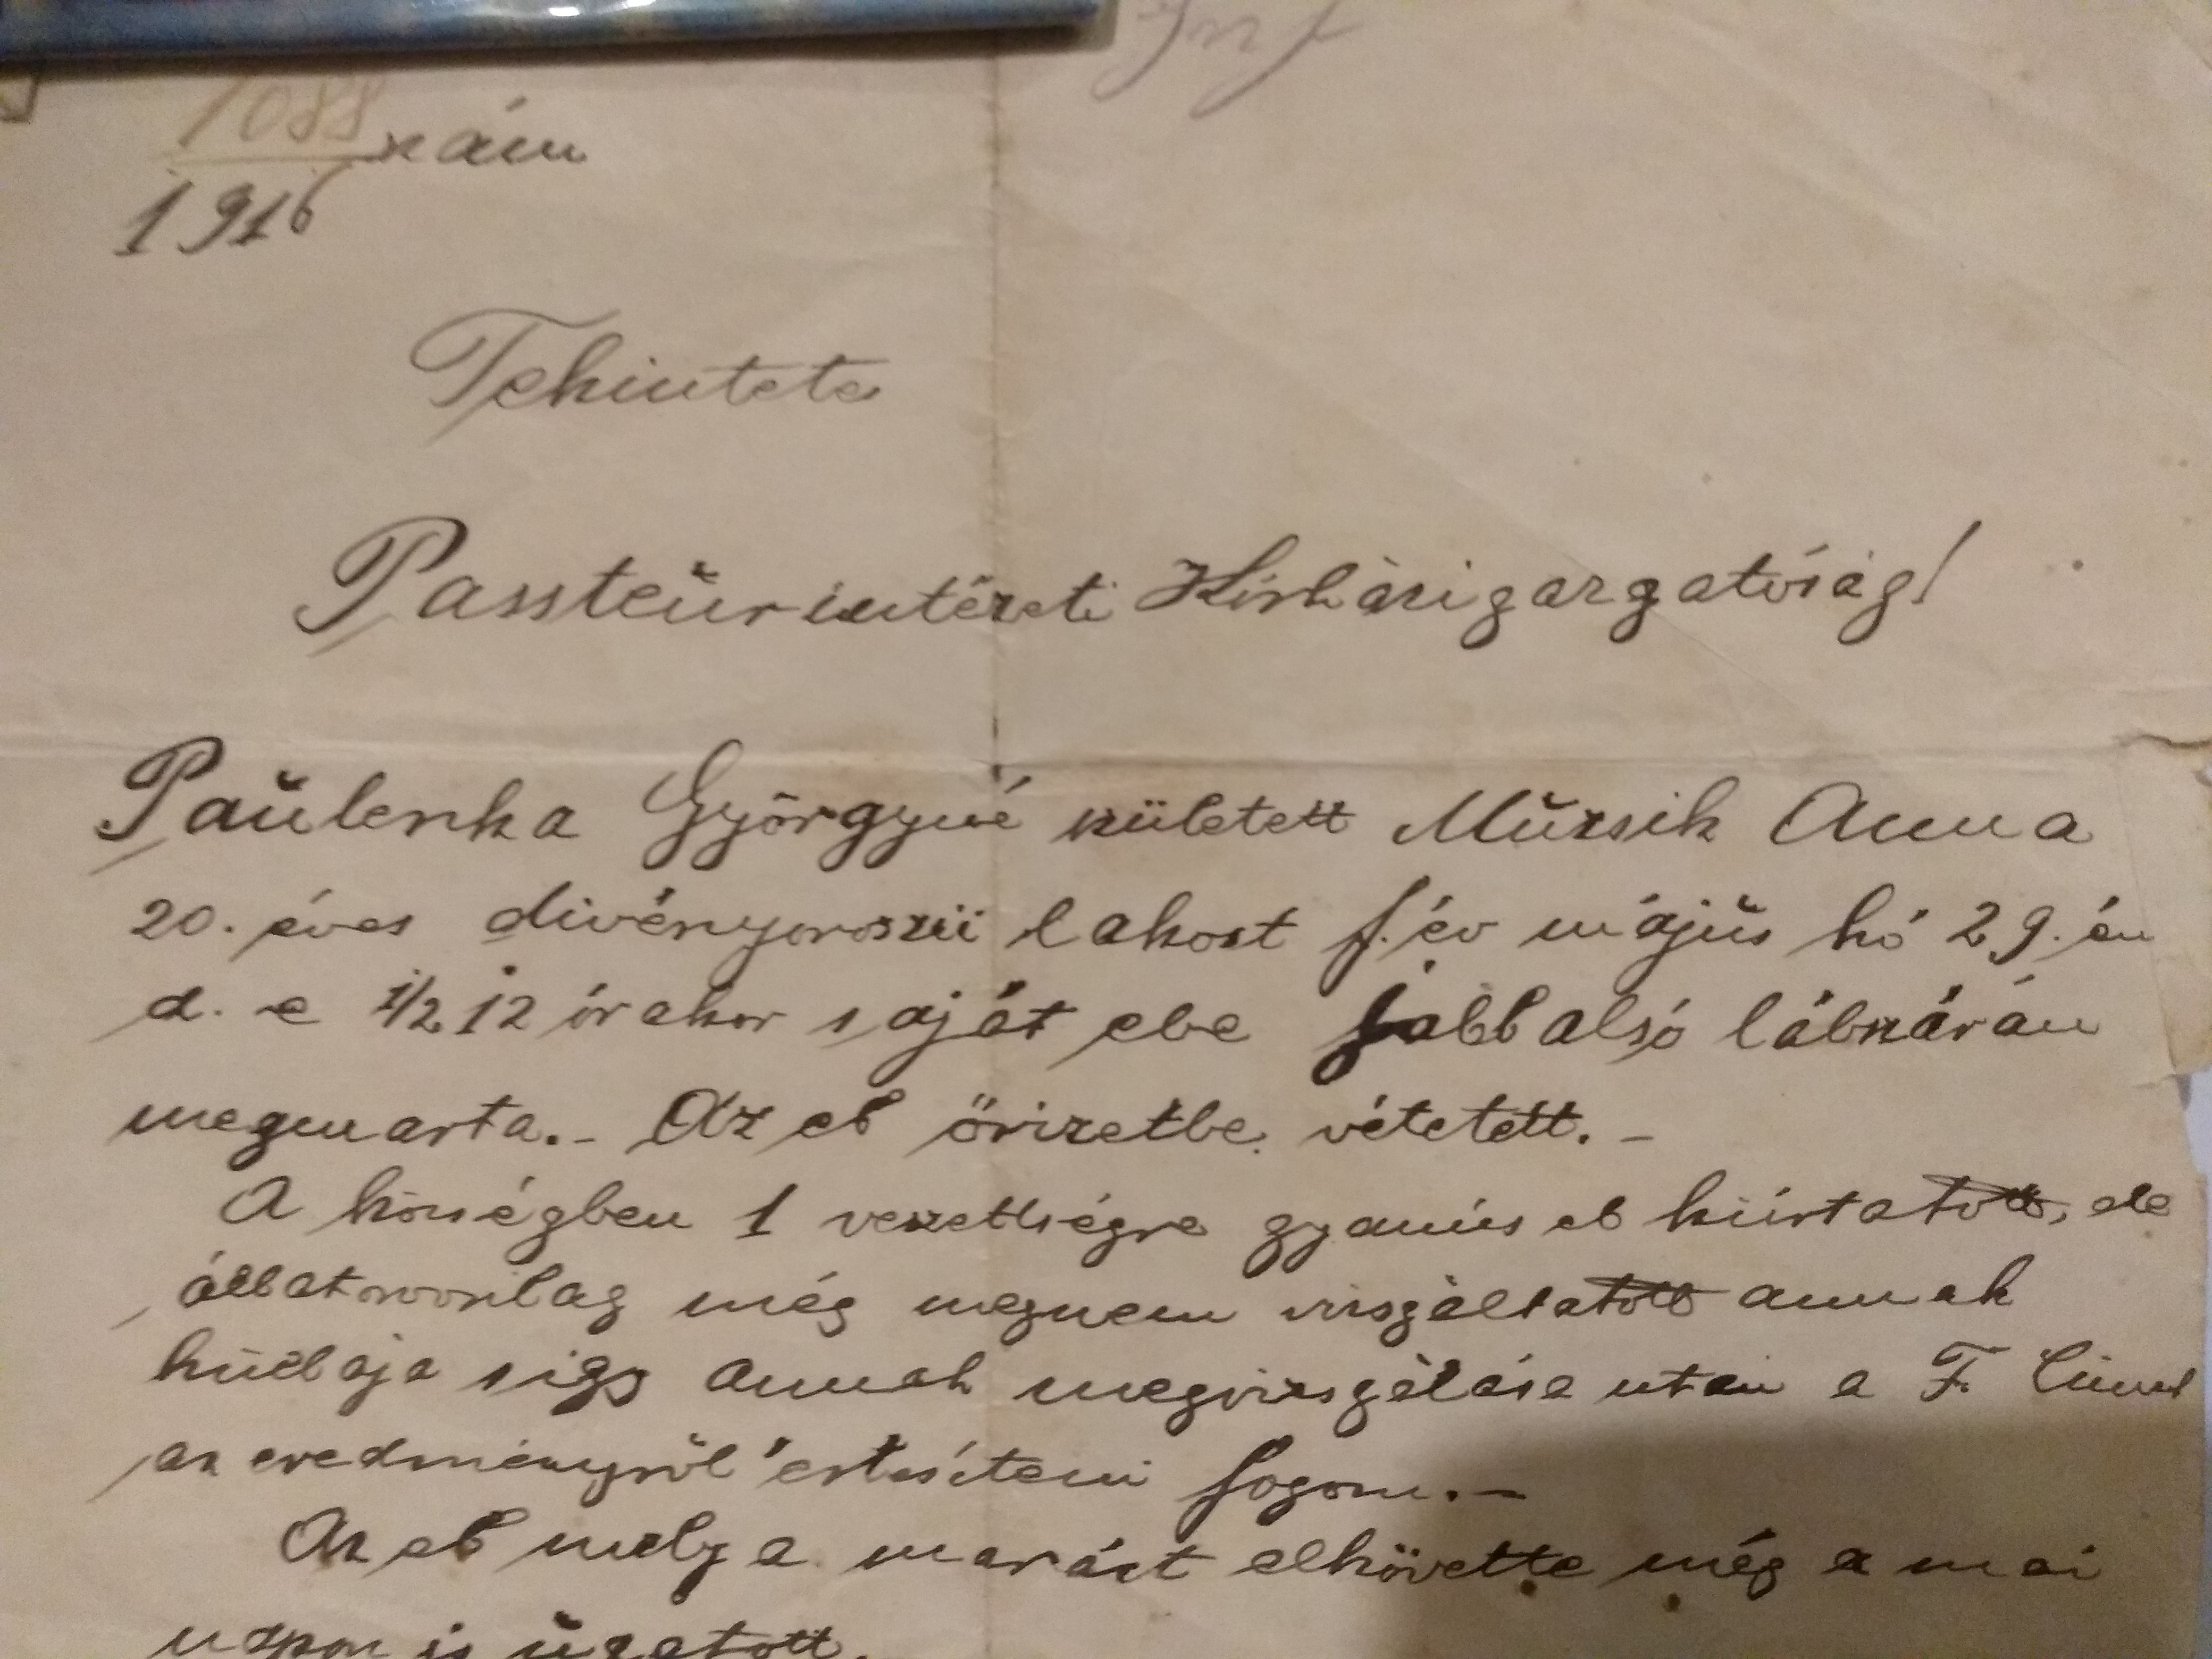 1088 szám
1916
Tekintetes
Passteur intézeti Kórházigazgatóság!
Paulenka Györgyné született Murzsik Anna
20. éves divényoroszii lakost f. év május hó 29.-én
d. e 1/2 12 órakor saját ebe jobb alsó lábszárán
megmarta.- Az eb őrizetbe vétetett.-
A községben 1 veszettségre gyanús eb kiirtatott, de
állatorvosilag még megnem visgáltatott annak
hullája s így annak megvizsgálása után a T. Címet
az eredményről értesíteni fogom.-
Az eb mely a marást elkövette még a mai
napon is ugatott.